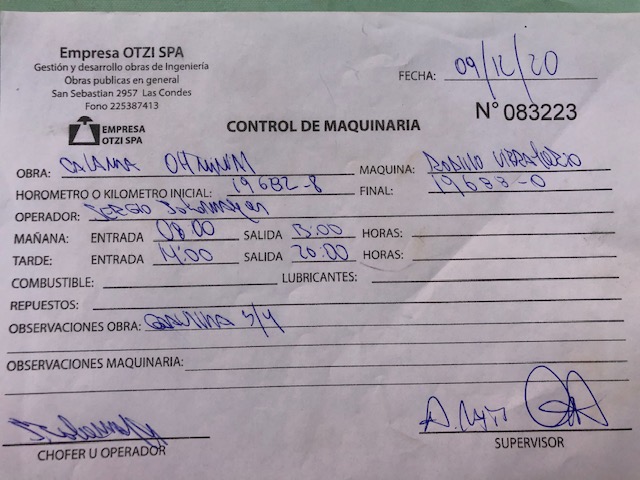 Empresa OTZI SPA
Gestión y desarrollo obras de Ingeniería
Obras publicas en general
San Sebastian 2957 Las Condes
Fono 225387413
FECHA: 09/12/20
EMPRESA
OTZI SPA
CONTROL DE MAQUINARIA
N° 083223
OBRA: MAQUINA: RODILLO VIBRATORIO
HOROMETRO O KILOMETRO INICIAL: 19682-8 FINAL: 19688-0
OPERADOR: SERGIO
MAÑANA: ENTRADA 08:00 SALIDA 13:00 HORAS:
TARDE: ENTRADA 14:00 SALIDA 20:00 HORAS:
COMBUSTIBLE: LUBRICANTES:
REPUESTOS:
OBSERVACIONES OBRA:
OBSERVACIONES MAQUINARIA:
CHOFER U OPERADOR SUPERVISOR